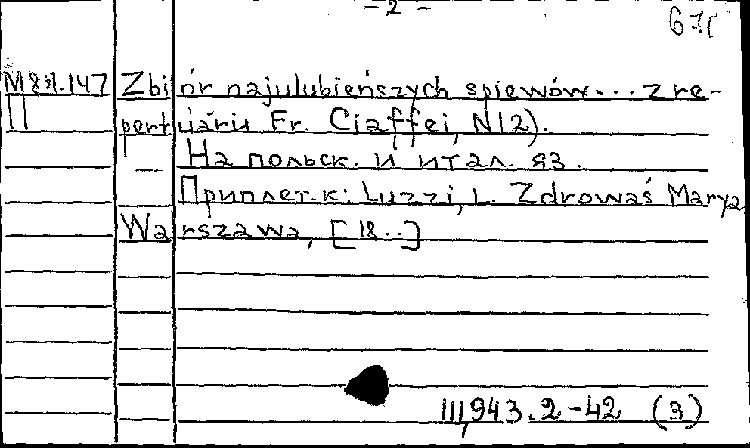 - 2 -
М8Л.147 Zbiór najulubieńszych śpiewów... z re-
П pertuaru Fr. Ciaffei, N12).
На польск. и итал. яз.
— Приплет. к: Luzzi, L. Zdrowaś Marya.
Warszawa, [18..]
111,943.2-42 (3)